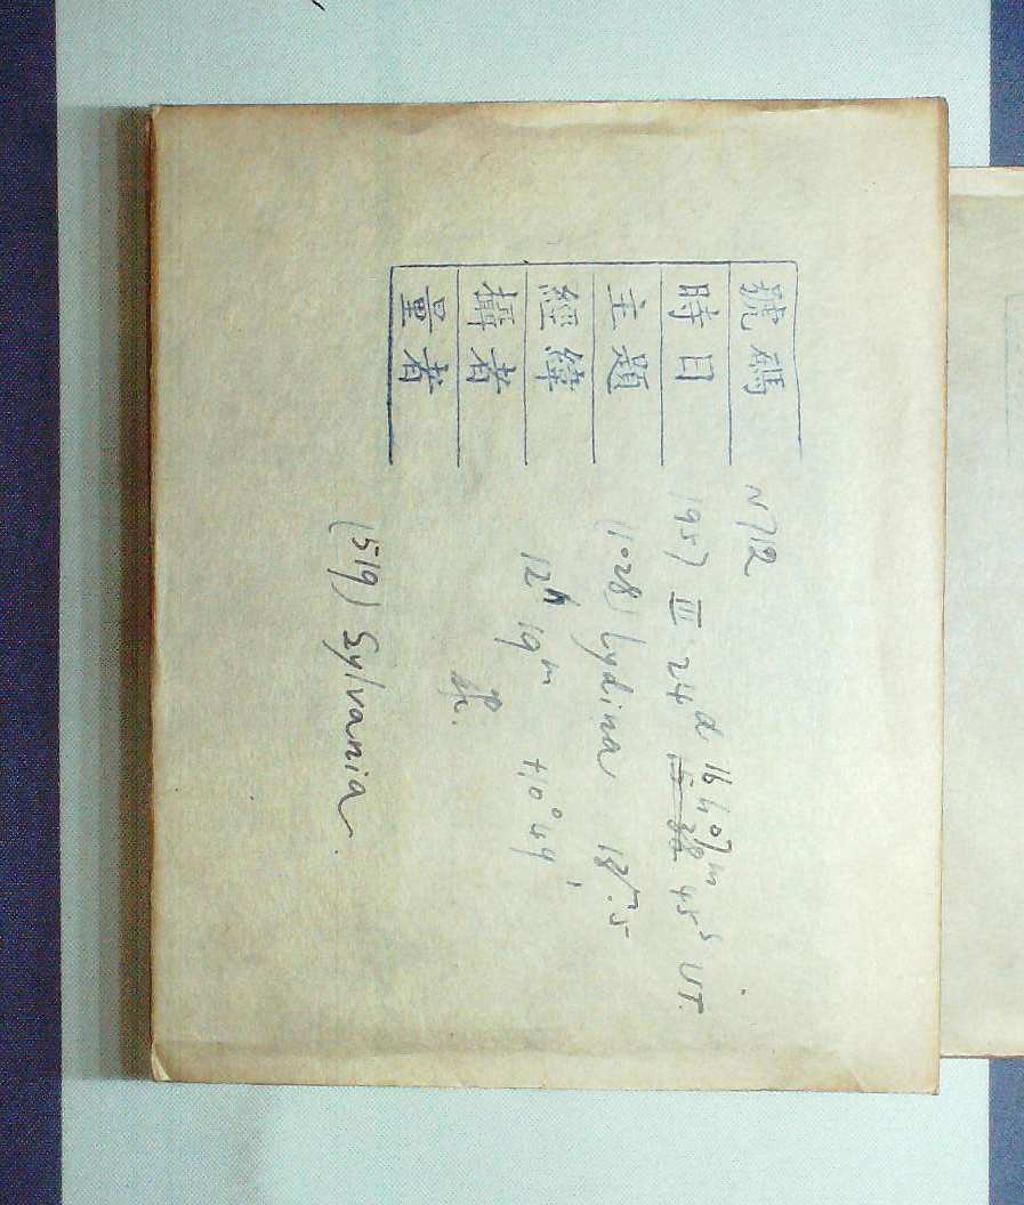 號碼 N712
時日 1957 III 24d 16h 07m 45s UT.
主題 (1028) Lydina 18m.5
經緯 12h 19m +10° 49'
攝者
量者
(519) Sylvania